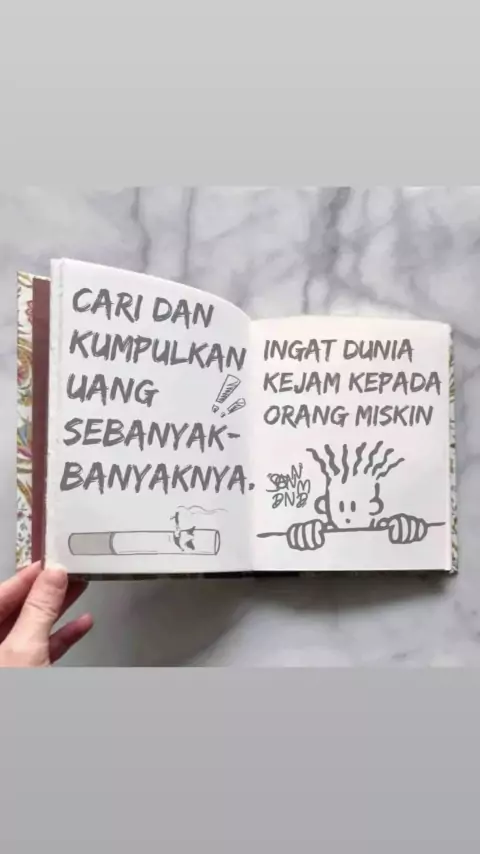 CARI DAN
KUMPULKAN
UANG
SEBANYAK-
BANYAKNYA.
INGAT DUNIA
KEJAM KEPADA
ORANG MISKIN